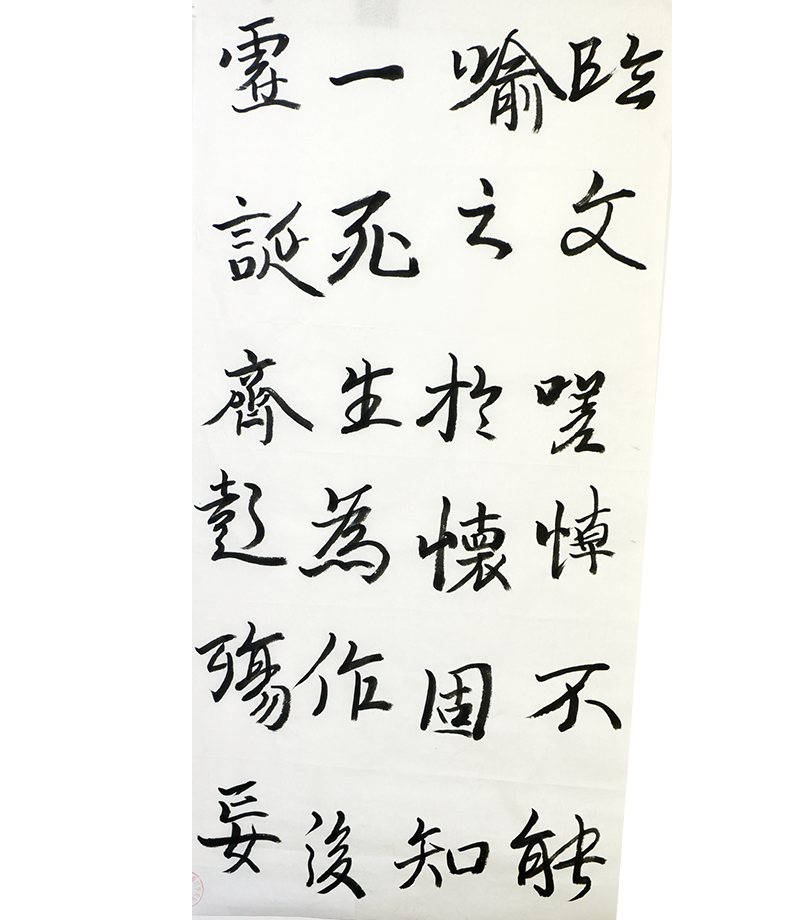 臨文嗟悼不能
喻之於懷固知
一死生為作後
虛誕齊彭殤妄